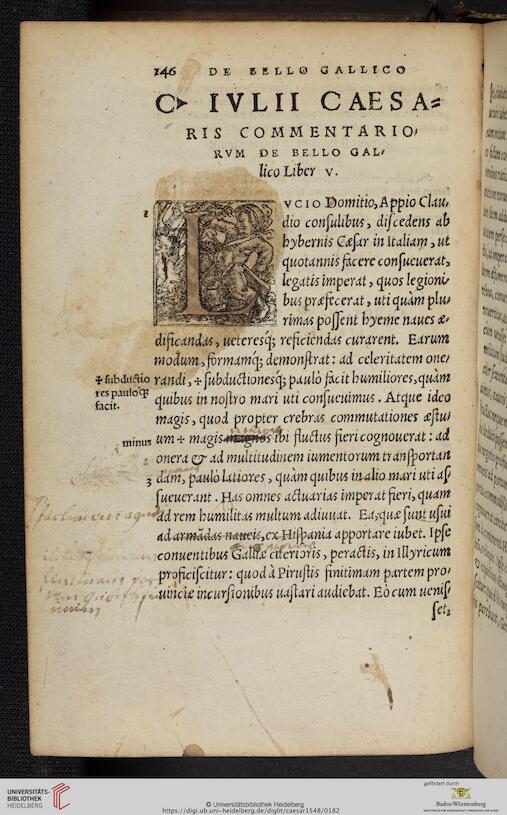 146 DE BELLO GALLICO
C▸ IVLII CAESA=
RIS COMMENTARIO,
RVM DE BELLO GAL,
lico Liber V.
1
LVCIO Domitio, Appio Clau,
dio consulibus, discedens ab
hybernis Cæsar in Italiam, ut
quotannis facere consueuerat,
legatis imperat, quos legioni,
bus præfecerat, uti quàm plu,
rimas possent hyeme naues æ,
dificandas, ueteresq́; reficiendas curarent. Earum
modum, formamq́; demonstrat: ad celeritatem one,
‡ subductio
res pauloq̃
facit.
randi, ‡ subductionesq́; paulò facit humiliores, quàm
quibus in nostro mari uti consueuimus. Atque ideo
magis, quod propter crebras commutationes æstu,
minus
um ‡ magis magnos ibi fluctus fieri cognouerat: ad
2
onera & ad multitudinem iumentorum transportan
3
dam, paulò latiores, quàm quibus in alio mari uti as,
sueuerant. Has omnes actuarias imperat fieri, quam
ad rem humilitas multum adiuuat. Ea, quæ sunt usui
ad armādas naueis, ex Hispania apportare iubet. Ipse
conuentibus Galliæ citerioris, peractis, in Illyricum
proficiscitur: quod à Pirustis finitimam partem pro,
uinciæ incursionibus uastari audiebat. Eò cum uenis,
set,
UNIVERSITÄTS-
BIBLIOTHEK
HEIDELBERG
© Universitätsbibliothek Heidelberg
https://digi.ub.uni-heidelberg.de/diglit/caesar1548/0182
gefördert durch
Baden-Württemberg